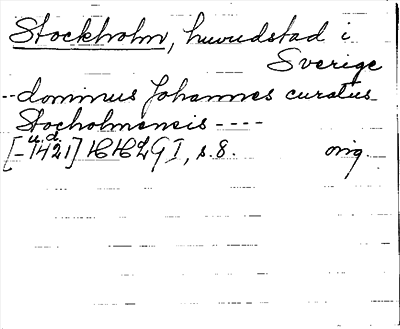 Stockholm, huvudstad i
Sverige
--dominus Johannes curatus
Stocholmensis ----
u.d.
[-1421] HHLG I, s. 8. orig.